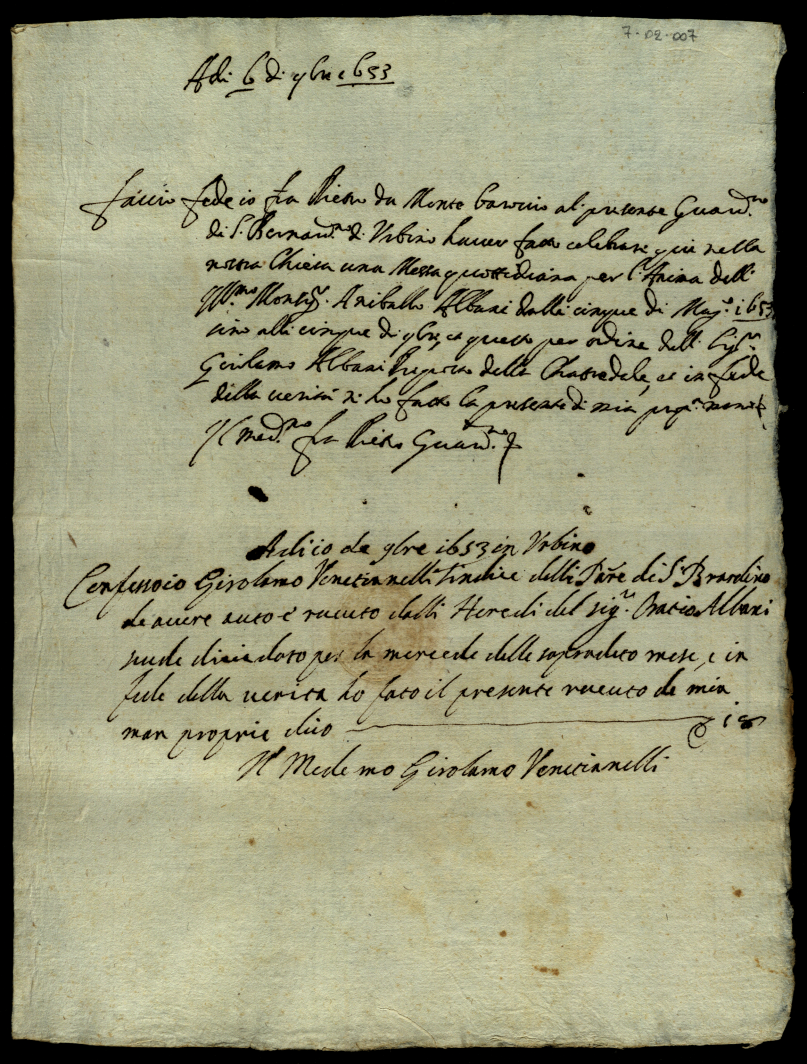 7-02-007
Adi 6 di 9bre 1653
Faccio fede io fra Pietro da Monte Baroccio al presente Guard.no
di S. Bernard.no di Urbino haver fatto celebrare qui nella
nostra Chiesa una Messa quottidiana per l'Anima dell'
Ill.mo Monsig.r Aniballe Albani dalli cinque di Mag.o 1653
sino alli cinque di 9bre, et questo per ordine dell Sig.r
Girolamo Albani Preposto della Chattedrale, et in fede
della verità n'ho fatto la presente di mia prop.a mano
Il med.mo fra Pietro Guard.no
Adi io de 9bre 1653 in Urbino
Confesso io Girolamo Venetianelli Sindice delli Padre di S.to Brardino
de avere auto e receuto dalli Heredi del sig.r Oratio Albani
scude diciadoto per la mercede delle sopradeto mese, e in
fede della verita ho fato il presente receuto de mia
man propria dico 18
Il Medemo Girolamo Venetianelli